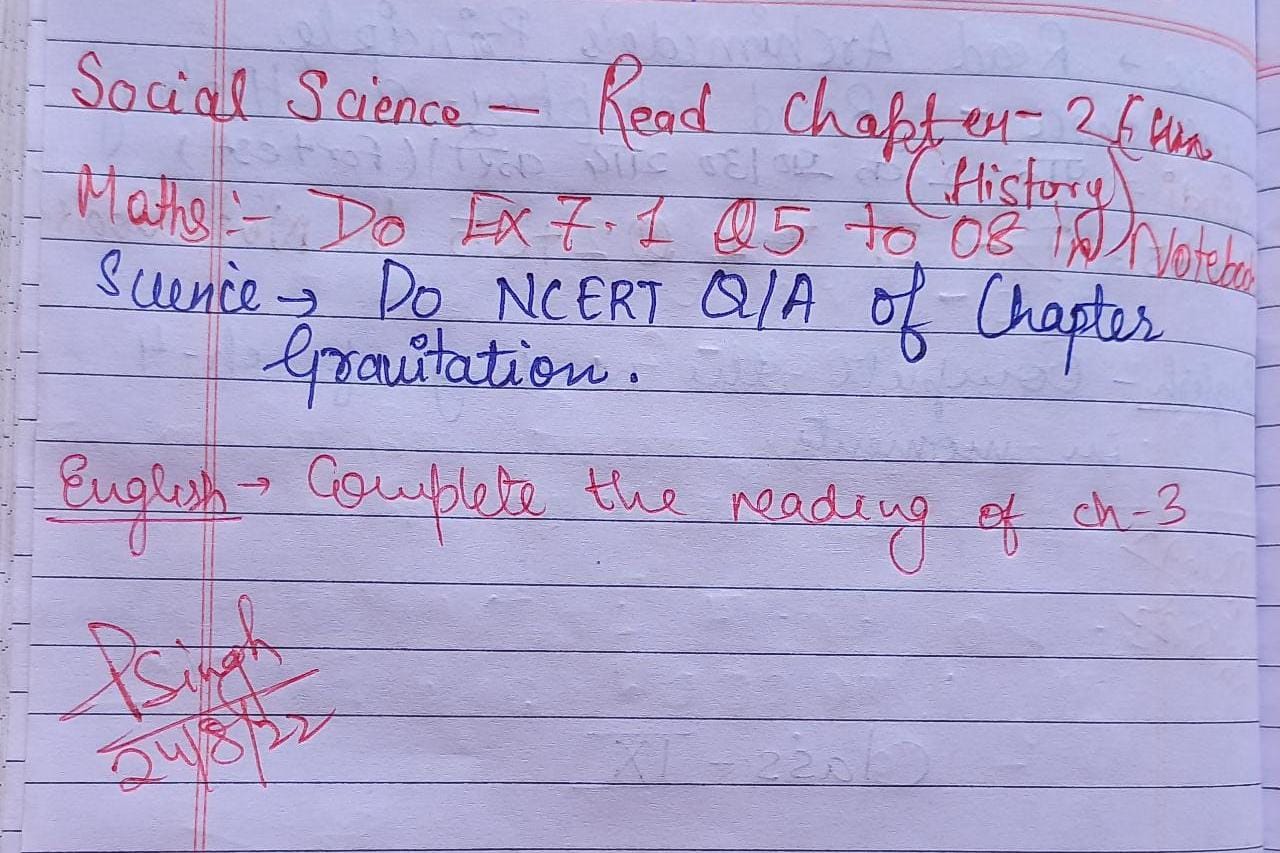 Social Science - Read Chapter- 2
(History)
Maths:- Do Ex 7.1 Q5 to 08 in Notebook
Science → Do NCERT Q/A of Chapter
Gravitation.
English → Complete the reading of ch-3
PSingh
24/8/22
Class - IX